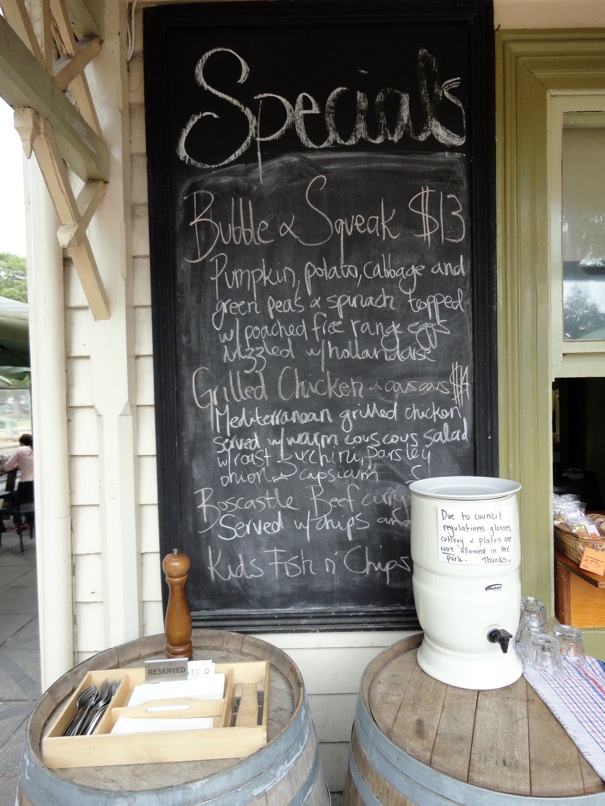 Specials
Bubble & Squeak $13
Pumpkin, potato, cabbage and
green peas & spinach topped
w/ poached free range eggs
drizzled w/ hollandaise
Grilled Chicken & couscous $14
Mediterranean grilled chicken
served w/ warm couscous salad
w/ roast zucchini, parsley
onion & capsicum
Boscastle Beef curry
Served w/ chips and
Kids Fish n' Chips
Due to council
regulations glasses,
cutlery & plates are
NOT allowed in the
park. Thanks.
RESERVED